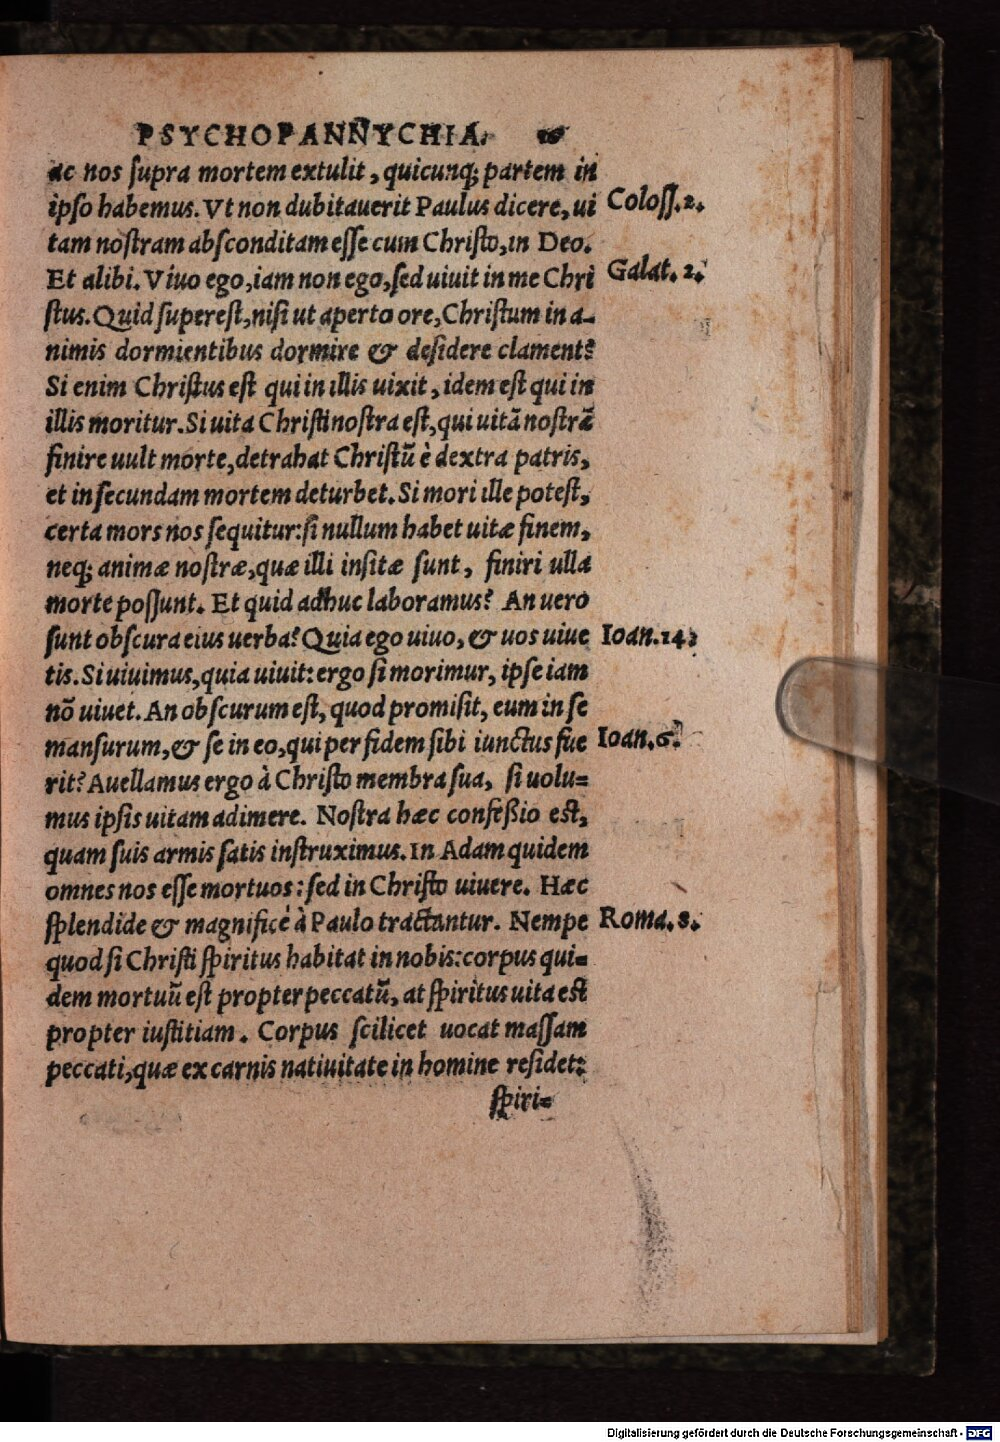 PSYCHOPANNYCHIA.
ac nos ſupra mortem extulit, quicunq; partem in
ipſo habemus. Vt non dubitauerit Paulus dicere, ui
Coloſſ. 2.
tam noſtram abſconditam eſſe cum Chriſto, in Deo.
Et alibi. Viuo ego, iam non ego, ſed uiuit in me Chri
Galat. 2.
ſtus. Quid ſupereſt, niſi ut aperto ore, Chriſtum in a-
nimis dormientibus dormire & deſidere clament?
Si enim Chriſtus eſt qui in illis uixit, idem eſt qui in
illis moritur. Si uita Chriſti noſtra eſt, qui uitã noſtrã
finire uult morte, detrahat Chriſtũ è dextra patris,
et in ſecundam mortem deturbet. Si mori ille poteſt,
certa mors nos ſequitur: ſi nullum habet uitæ finem,
neq; animæ noſtræ, quæ illi inſitæ ſunt, finiri ulla
morte poſſunt. Et quid adhuc laboramus? An uero
ſunt obſcura eius uerba? Quia ego uiuo, & uos uiue
Ioan. 14.
tis. Si uiuimus, quia uiuit: ergo ſi morimur, ipſe iam
nõ uiuet. An obſcurum eſt, quod promiſit, eum in ſe
manſurum, & ſe in eo, qui per fidem ſibi iunctus fue
Ioan. 6.
rit? Auellamus ergo à Chriſto membra ſua, ſi uolu=
mus ipſis uitam adimere. Noſtra hæc confeßio eſt,
quam ſuis armis ſatis inſtruximus. In Adam quidem
omnes nos eſſe mortuos: ſed in Chriſto uiuere. Hæc
ſplendide & magnificè à Paulo tractantur. Nempe
Roma. 8.
quod ſi Chriſti ſpiritus habitat in nobis: corpus qui=
dem mortuũ eſt propter peccatũ, at ſpiritus uita eſt
propter iuſtitiam. Corpus ſcilicet uocat maſſam
peccati, quæ ex carnis natiuitate in homine reſidet:
ſpiri=
Digitalisierung gefördert durch die Deutsche Forschungsgemeinschaft - DFG